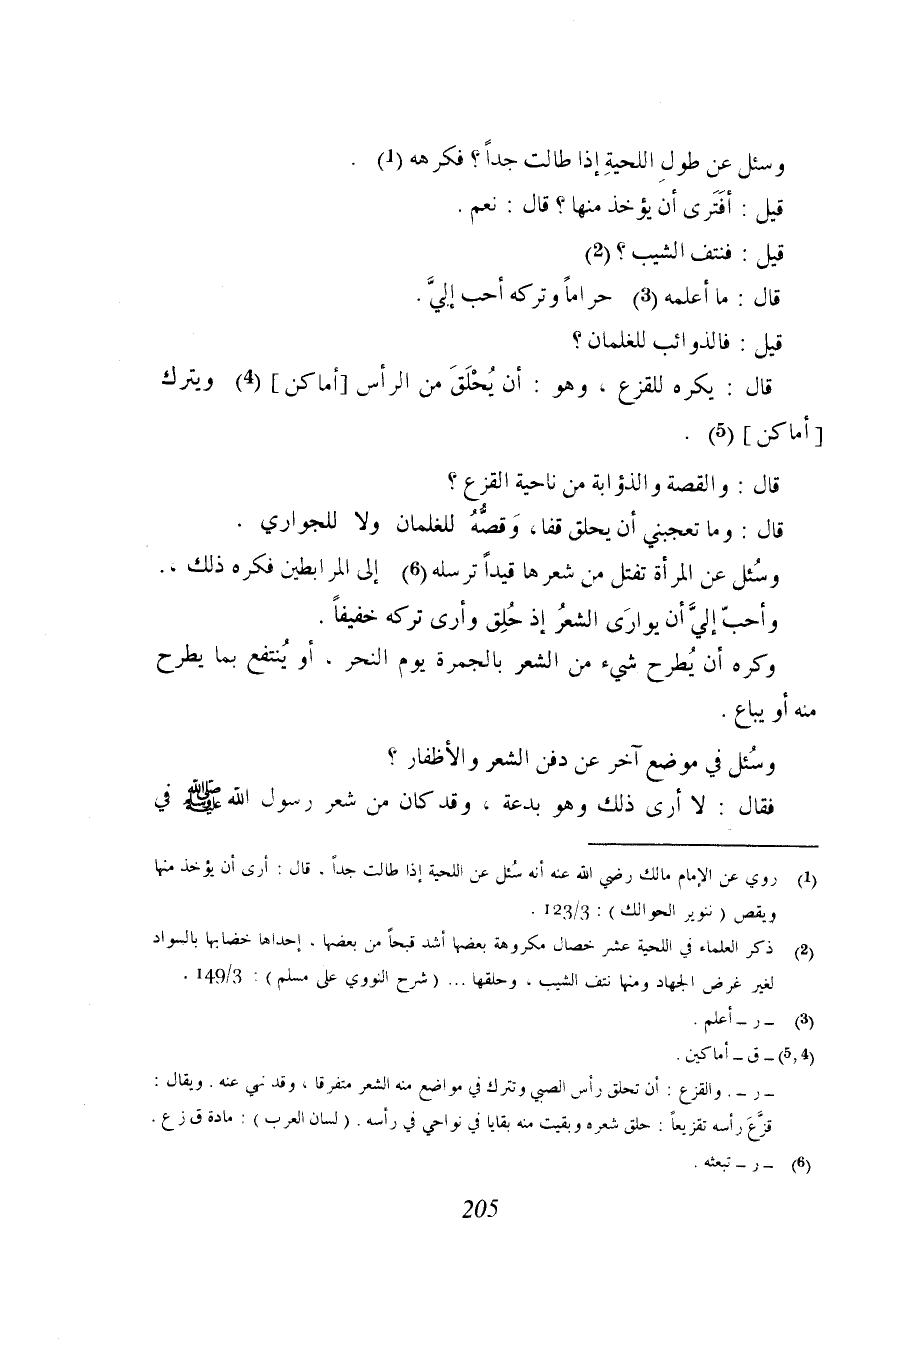 وسئل عن طول اللحيةِ إذا طالت جداً ؟ فكرهه (1) .
قيل : أفَتَرى أن يؤخذ منها ؟ قال : نعم .
قيل : فنتف الشيب ؟ (2)
قال : ما أعلمه (3) حراماً وتركه أحب إليَّ .
قيل : فالذوائب للغلمان ؟
قال : يكره للقزع ، وهو : أن يُحْلَقَ من الرأس [أماكن] (4) ويترك
[أماكن] (5) .
قال : والقصة والذؤابة من ناحية القزع ؟
قال : وما تعجبني أن يحلق قفا، وَقصُّهُ للغلمان ولا للجواري .
وسُئل عن المرأة تفتل من شعرها قيداً ترسله (6) إلى المرابطين فكره ذلك ..
وأحبّ إليَّ أن يوارَى الشعرُ إذ حُلِق وأرى تركه خفيفاً .
وكره أن يُطرح شيء من الشعر بالجمرة يوم النحر . أو يُنتفع بما يطرح
منه أو يباع .
وسُئل في موضع آخر عن دفن الشعر والأظفار ؟
فقال : لا أرى ذلك وهو بدعة ، وقد كان من شعر رسول الله ﷺ في
(1) روي عن الإمام مالك رضي الله عنه أنه سُئل عن اللحية إذا طالت جداً . قال : أرى أن يؤخذ منها
ويقص ( تنوير الحوالك ) : 123/3 .
(2) ذكر العلماء في اللحية عشر خصال مكروهة بعضها أشد قبحاً من بعضها . إحداها خضابها بالسواد
لغير غرض الجهاد ومنها نتف الشيب ، وحلقها ... ( شرح النووي على مسلم ) : 149/3 .
(3) ـ ر ـ أعلم .
(5,4) ـ ق ـ أماكين .
ـ ر ـ . والقزع : أن تحلق رأس الصبي وتترك في مواضع منه الشعر متفرقا ، وقد نهي عنه . ويقال :
قزَّعَ رأسه تقزيعاً : حلق شعره وبقيت منه بقايا في نواحي في رأسه . ( لسان العرب ) : مادة ق ز ع .
(6) ـ ر ـ تبعثه .
205